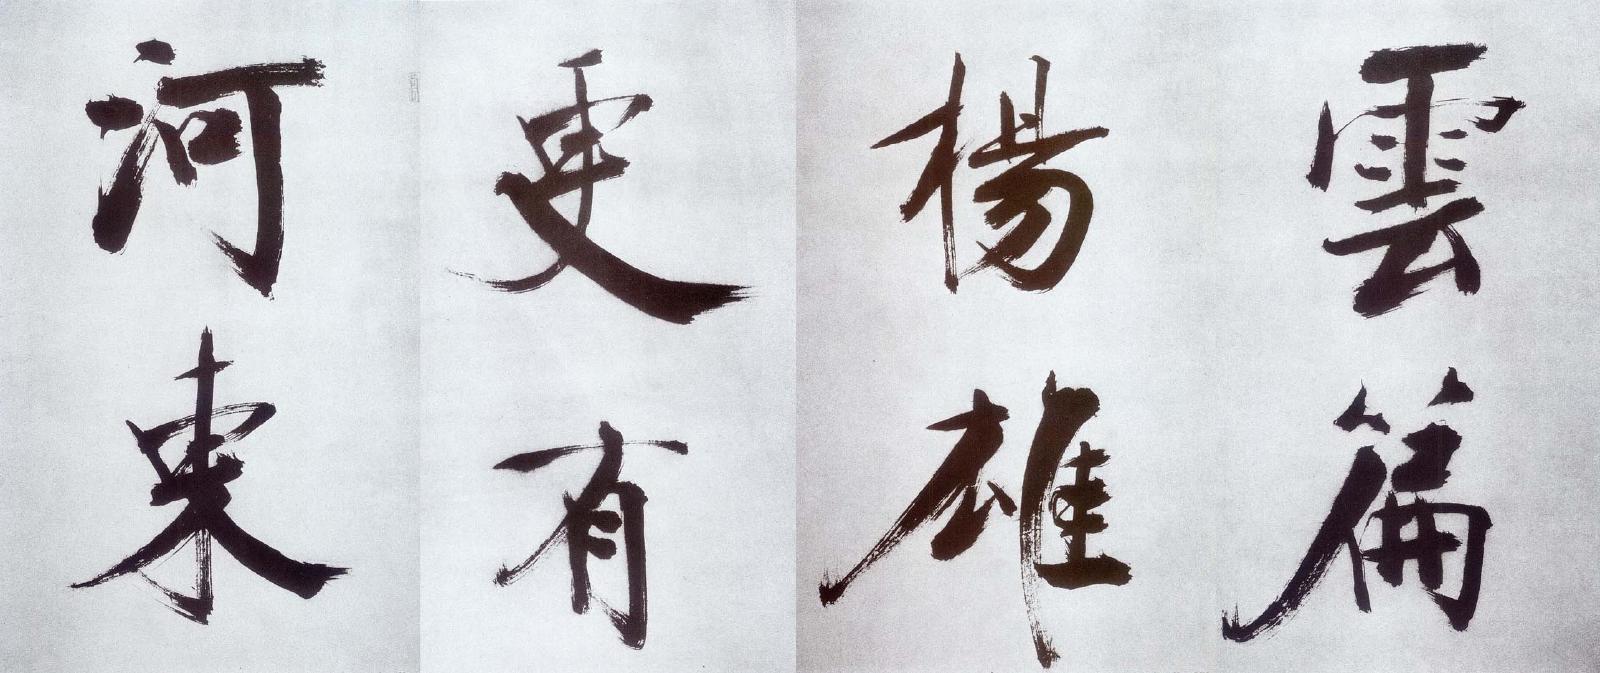 雲篇
楊雄
更有
河東